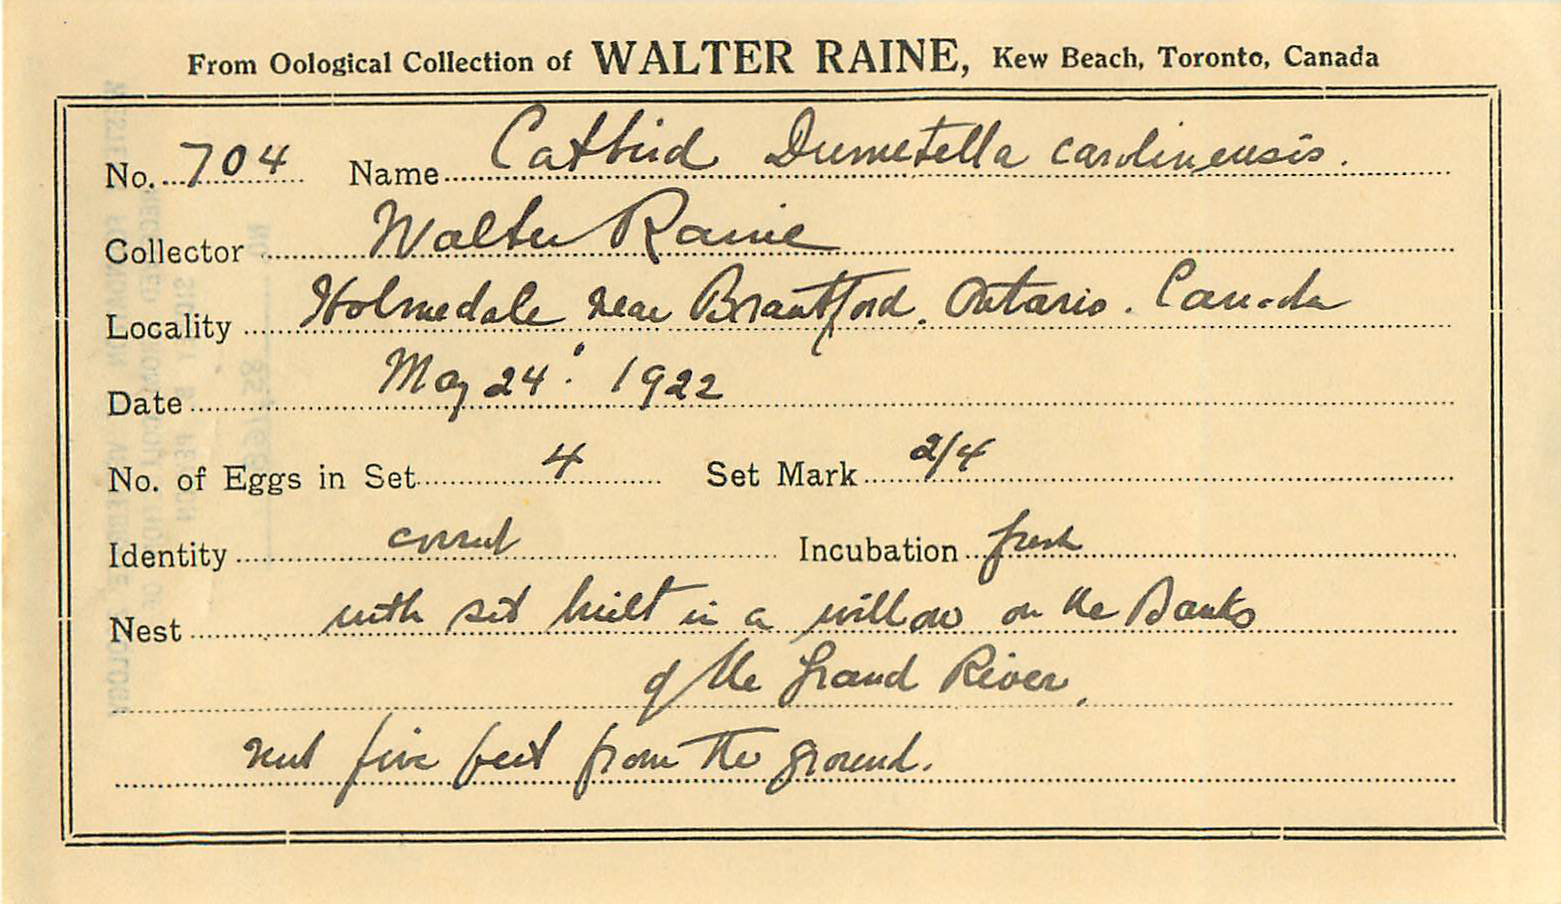 From Oological Collection of WALTER RAINE, Kew Beach, Toronto, Canada
No. 704 Name Catbird Dumetella carolinensis.
Collector Walter Raine
Locality Holmedale near Brantford. Ontario. Canada
Date May 24. 1922
No. of Eggs in Set 4 Set Mark 2/4
Identity correct Incubation fresh
Nest with set built in a willow on the Banks
of the Grand River,
nest five feet from the ground.